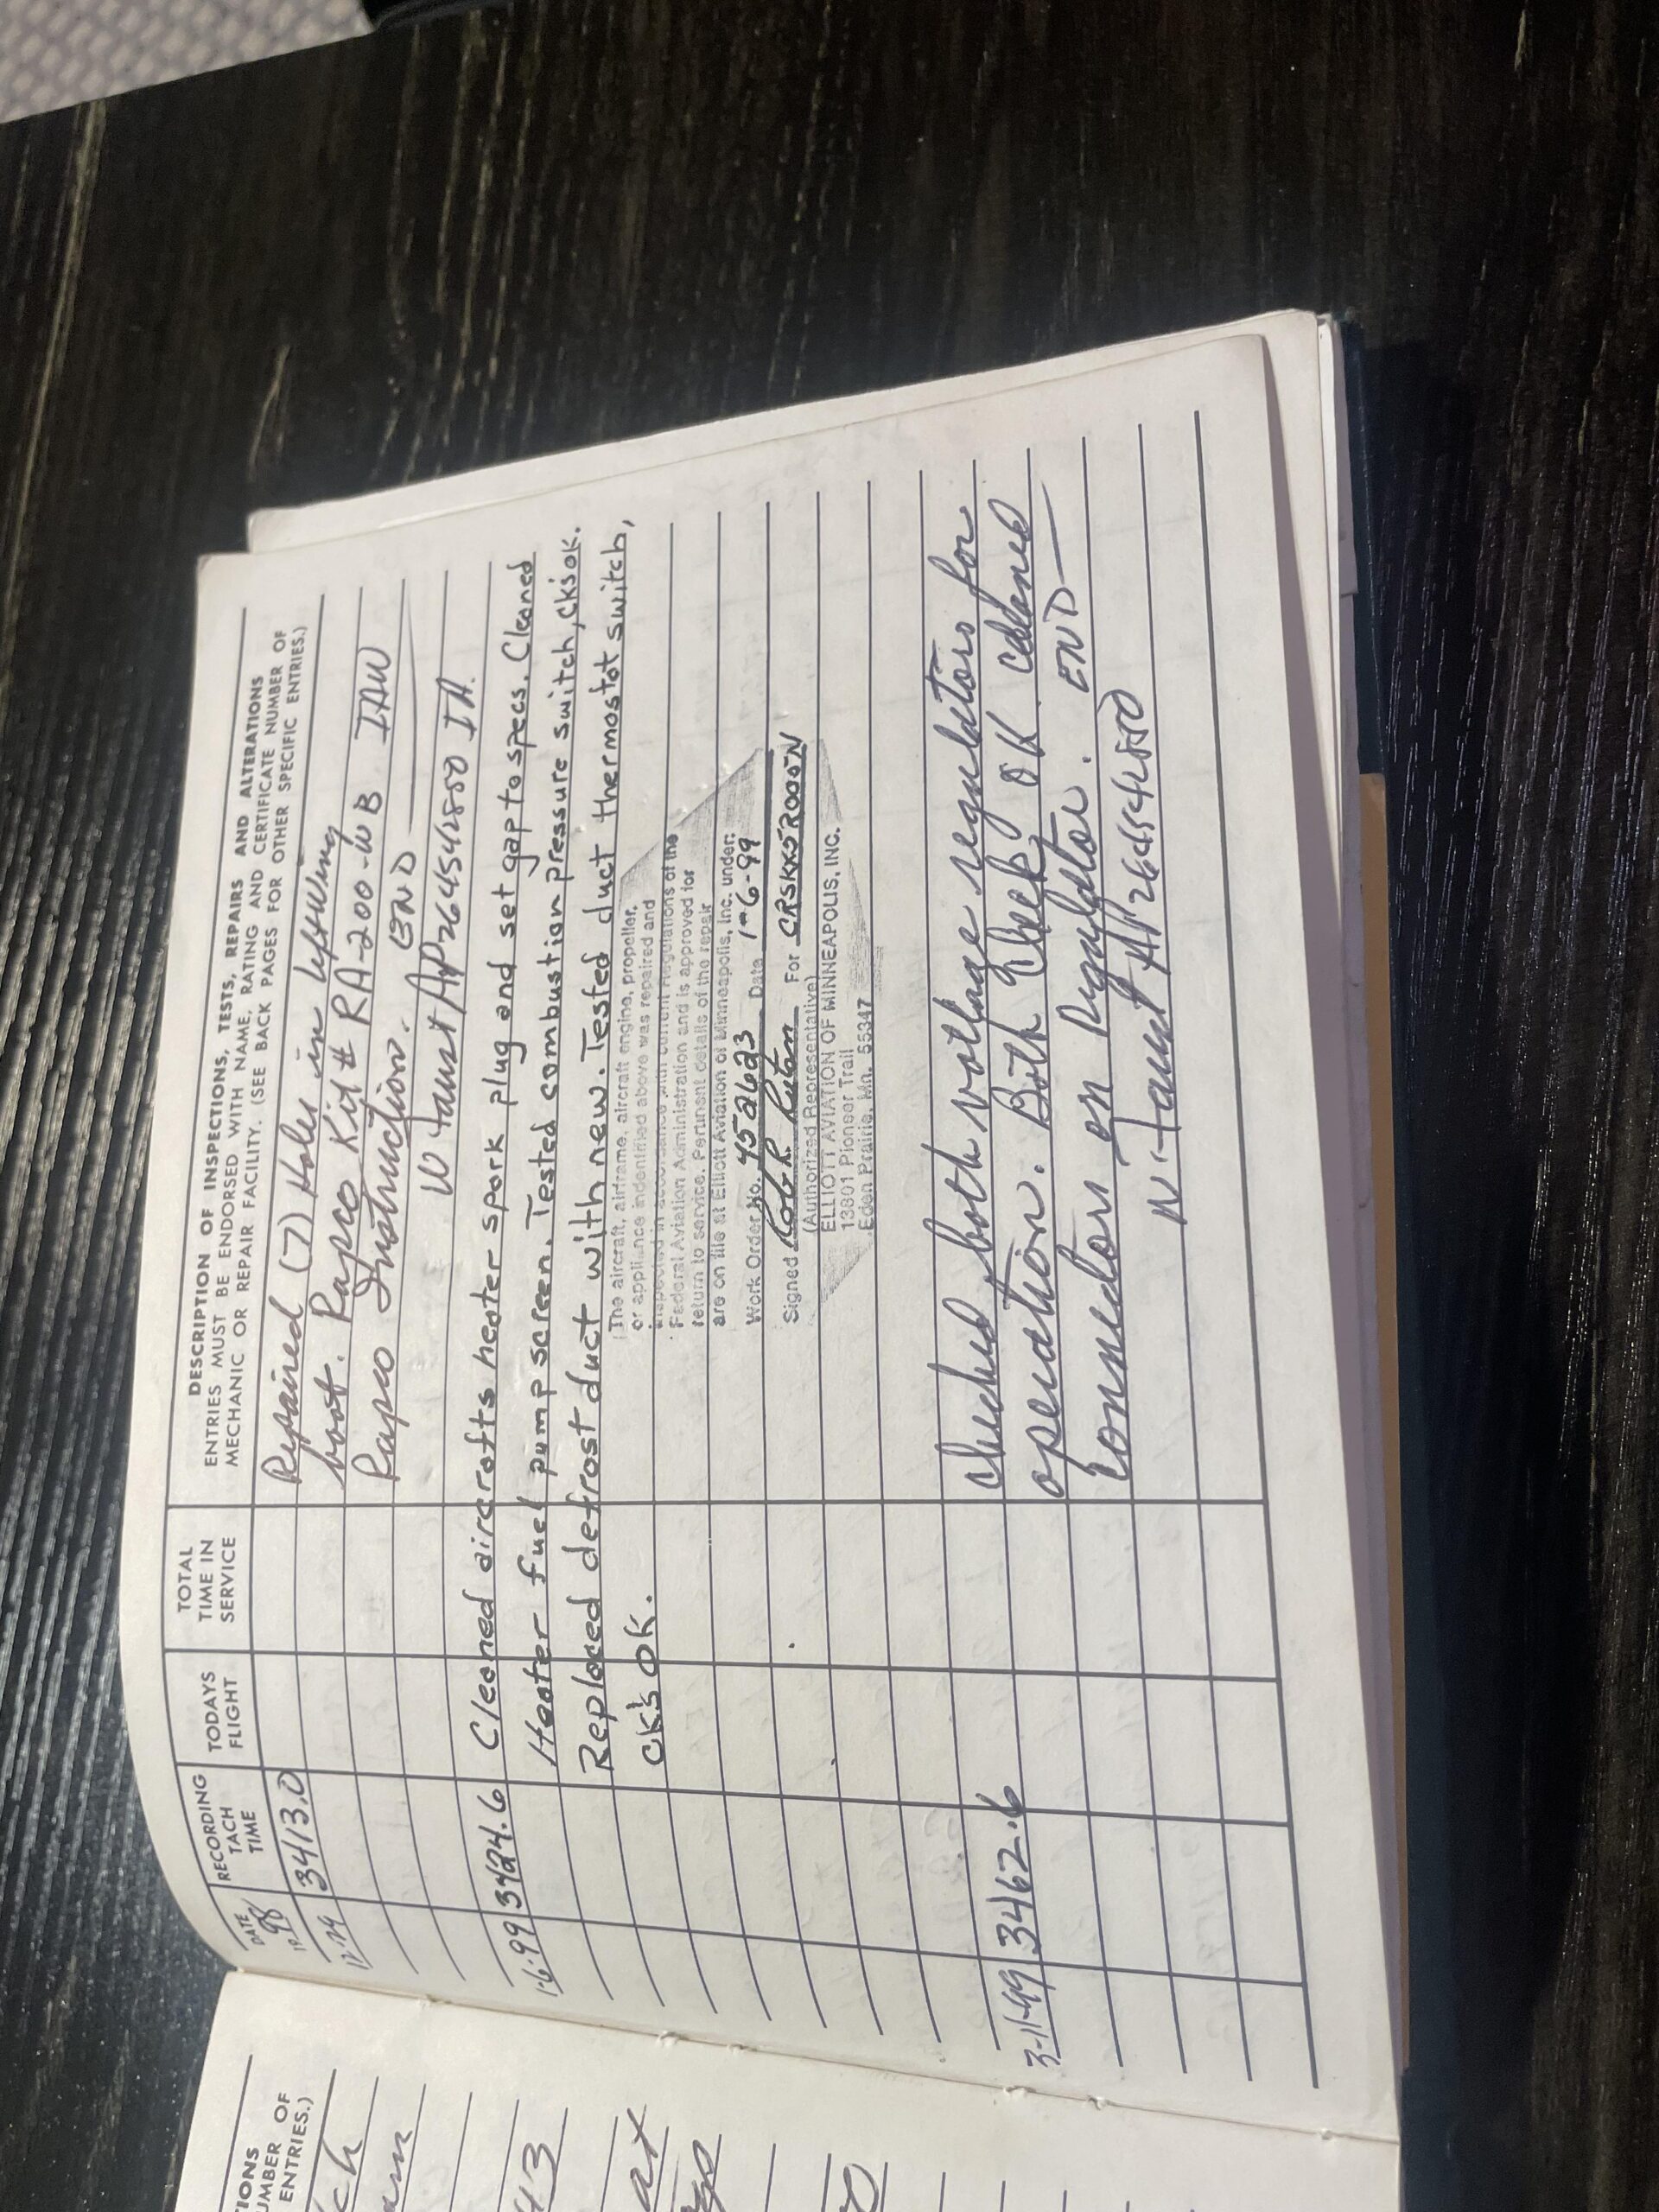 DATE
RECORDING TACH TIME
TODAYS FLIGHT
TOTAL TIME IN SERVICE
DESCRIPTION OF INSPECTIONS, TESTS, REPAIRS AND ALTERATIONS
ENTRIES MUST BE ENDORSED WITH NAME, RATING AND CERTIFICATE NUMBER OF
MECHANIC OR REPAIR FACILITY. (SEE BACK PAGES FOR OTHER SPECIFIC ENTRIES.)
98
12-29 3413.0 Repaired (7) Holes in left wing
boot. Rapco Kit # RA-200-WB IAW
Rapco Instruction. END
W Faust AP26454280 IA.
1-6-99 3424.6 Cleaned aircrafts heater spark plug and set gap to specs. Cleaned
Heater fuel pump screen. Tested combustion pressure switch, ck's ok.
Replaced defrost duct with new. Tested duct thermostat switch,
ck's OK.
The aircraft, airframe, aircraft engine, propeller,
or appliance indentified above was repaired and
inspected in accordance with current Regulations of the
Federal Aviation Administration and is approved for
return to service. Pertinent details of the repair
are on file at Elliott Aviation of Minneapolis, Inc. under:
Work Order No. 452623 Date 1-6-99
Signed For CRSKK5R000N
(Authorized Representative)
ELLIOTT AVIATION OF MINNEAPOLIS, INC.
13801 Pioneer Trail
Eden Prairie, Mn. 55347
3-11-99 3462.6 checked both voltage regulators for
operation. Both check OK cleaned
connectors on Regulator. END
W. Faust AP26454280
TIONS
UMBER OF
ENTRIES.)
ch
43